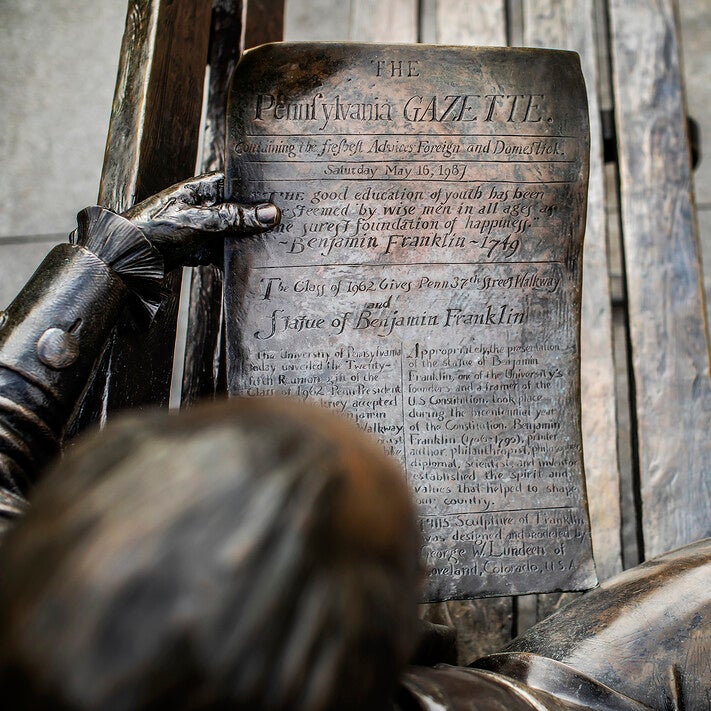 THE
Pennsylvania GAZETTE.
Containing the freshest Advices Foreign and Domestick.
Saturday May 16, 1987
"THE good education of youth has been
esteemed by wise men in all ages as
the surest foundation of happiness."
~Benjamin Franklin~1749
The Class of 1962 Gives Penn 37th Street Walkway
and
Statue of Benjamin Franklin
The University of Pennsylvania
today unveiled the Twenty-
fifth Reunion of the
Class of 1962. Penn President
accepted
Benjamin
Walkway
Appropriately, the presentation
of the statue of Benjamin
Franklin, one of the University's
founders and a framer of the
U.S. Constitution, took place
during the bicentennial year
of the Constitution. Benjamin
Franklin (1706-1790), printer
author, philanthropist,
diplomat, scientist and inventor
established the spirit and
values that helped to shape
our country.
THIS Sculpture of Franklin
was designed and modeled by
George W. Lundeen of
Loveland, Colorado, U.S.A.